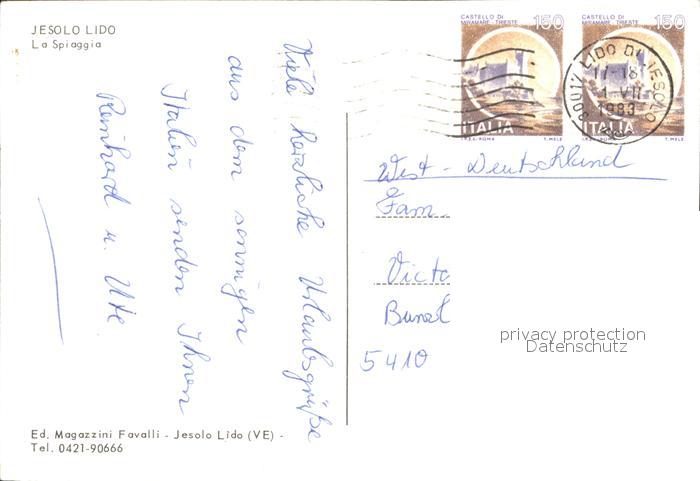 JESOLO LIDO
La Spiaggia
Viele herzliche Urlaubsgrüße
aus dem sonnigen
Italien senden Ihnen
Reinhard u. Ute.
Ed. Magazzini Favalli - Jesolo Lido (VE) -
Tel. 0421-90666
CASTELLO DI
MIRAMARE - TRIESTE
150
ITALIA
I.P.Z.S. - ROMA
T. MELE
CASTELLO DI
MIRAMARE - TRIESTE
150
ITALIA
I.P.Z.S. - ROMA
T. MELE
LIDO DI JESOLO
17-18
1 VII
1983
West - Deutschland
Fam.
Victo
5410
privacy protection
Datenschutz